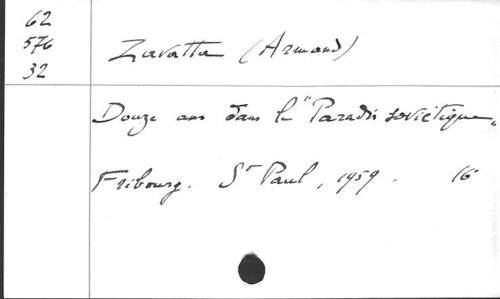 62
576
32
Zavatta (Armand)
Douze ans dans le "Paradis soviétique"
Fribourg. St Paul, 1959. 16